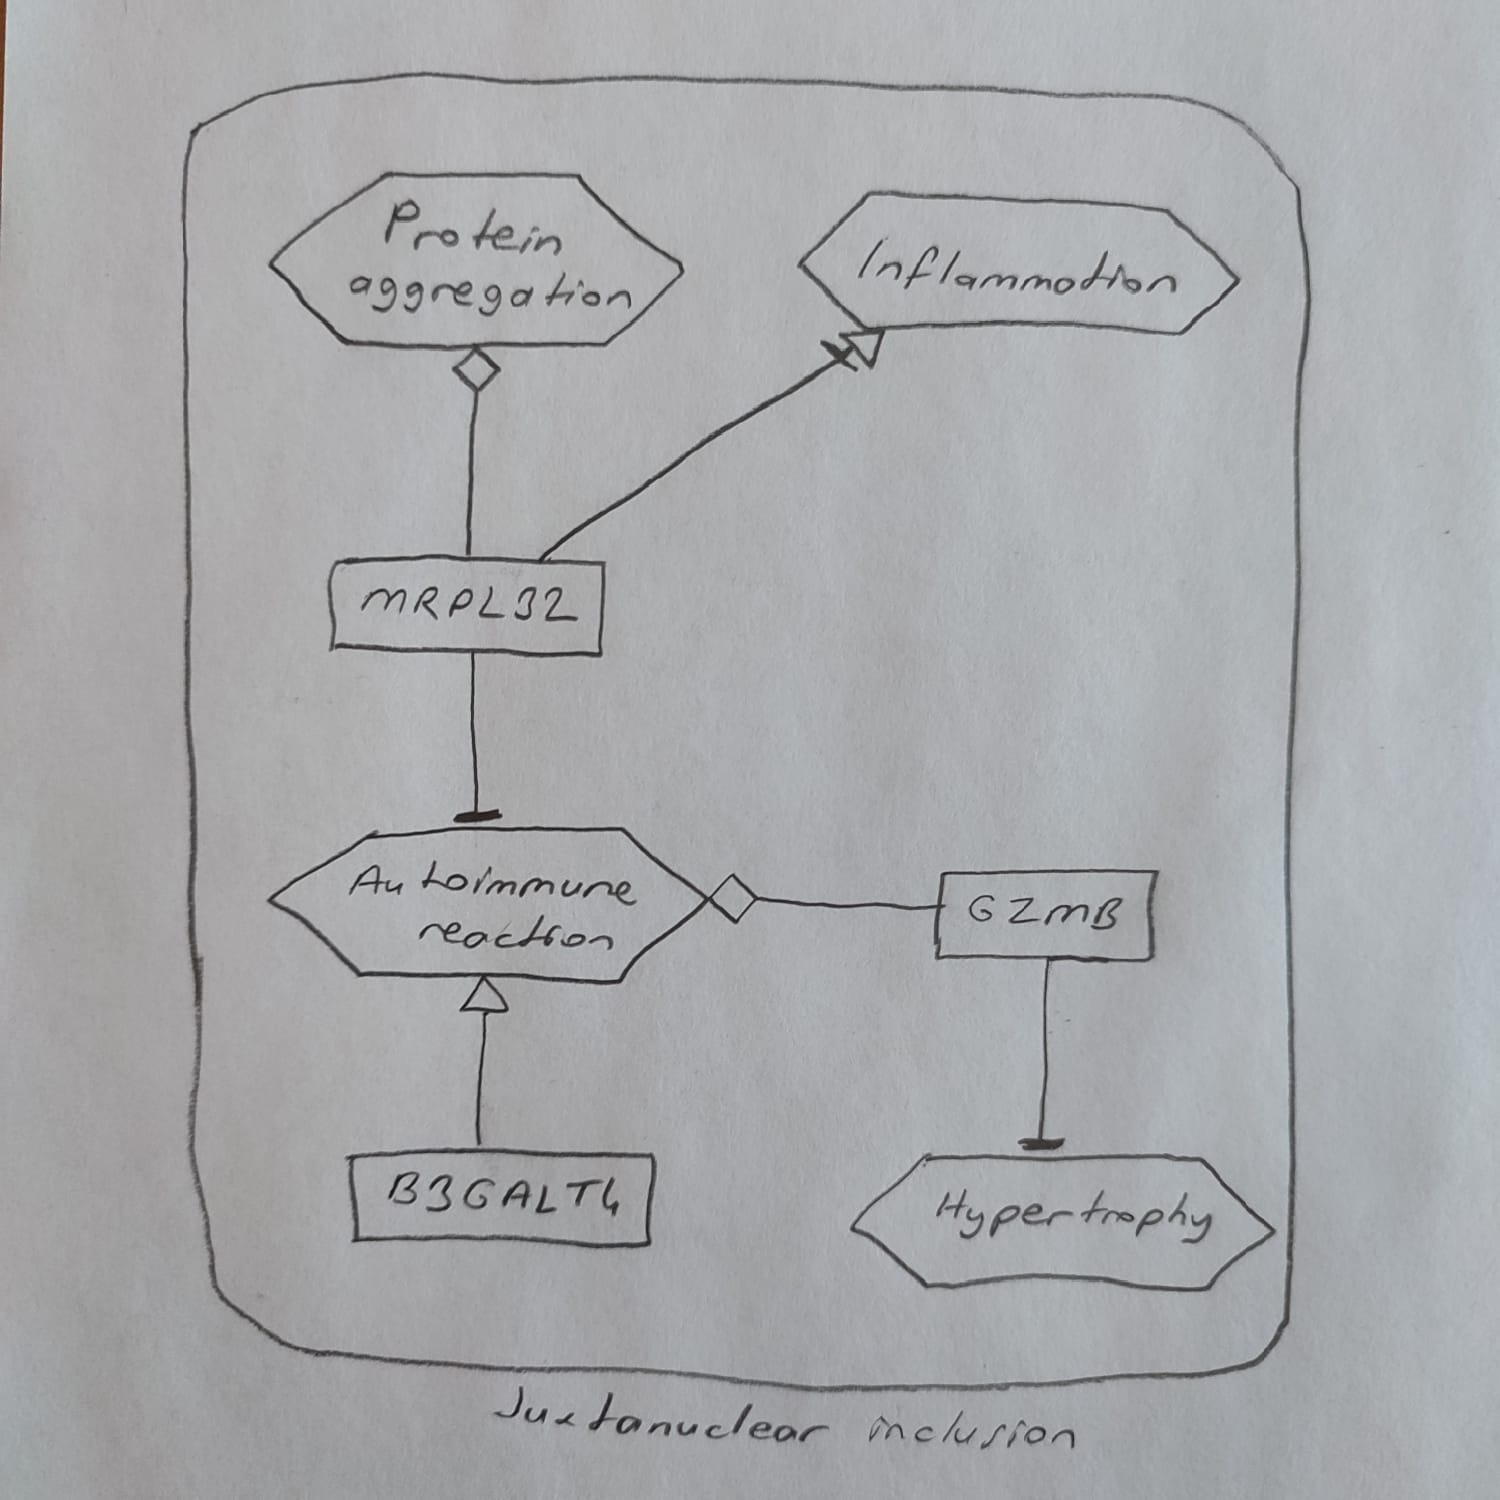 Protein
aggregation
Inflammation
MRPL32
Autoimmune
reaction
GZMB
B3GALT4
Hypertrophy
Juxtanuclear inclusion